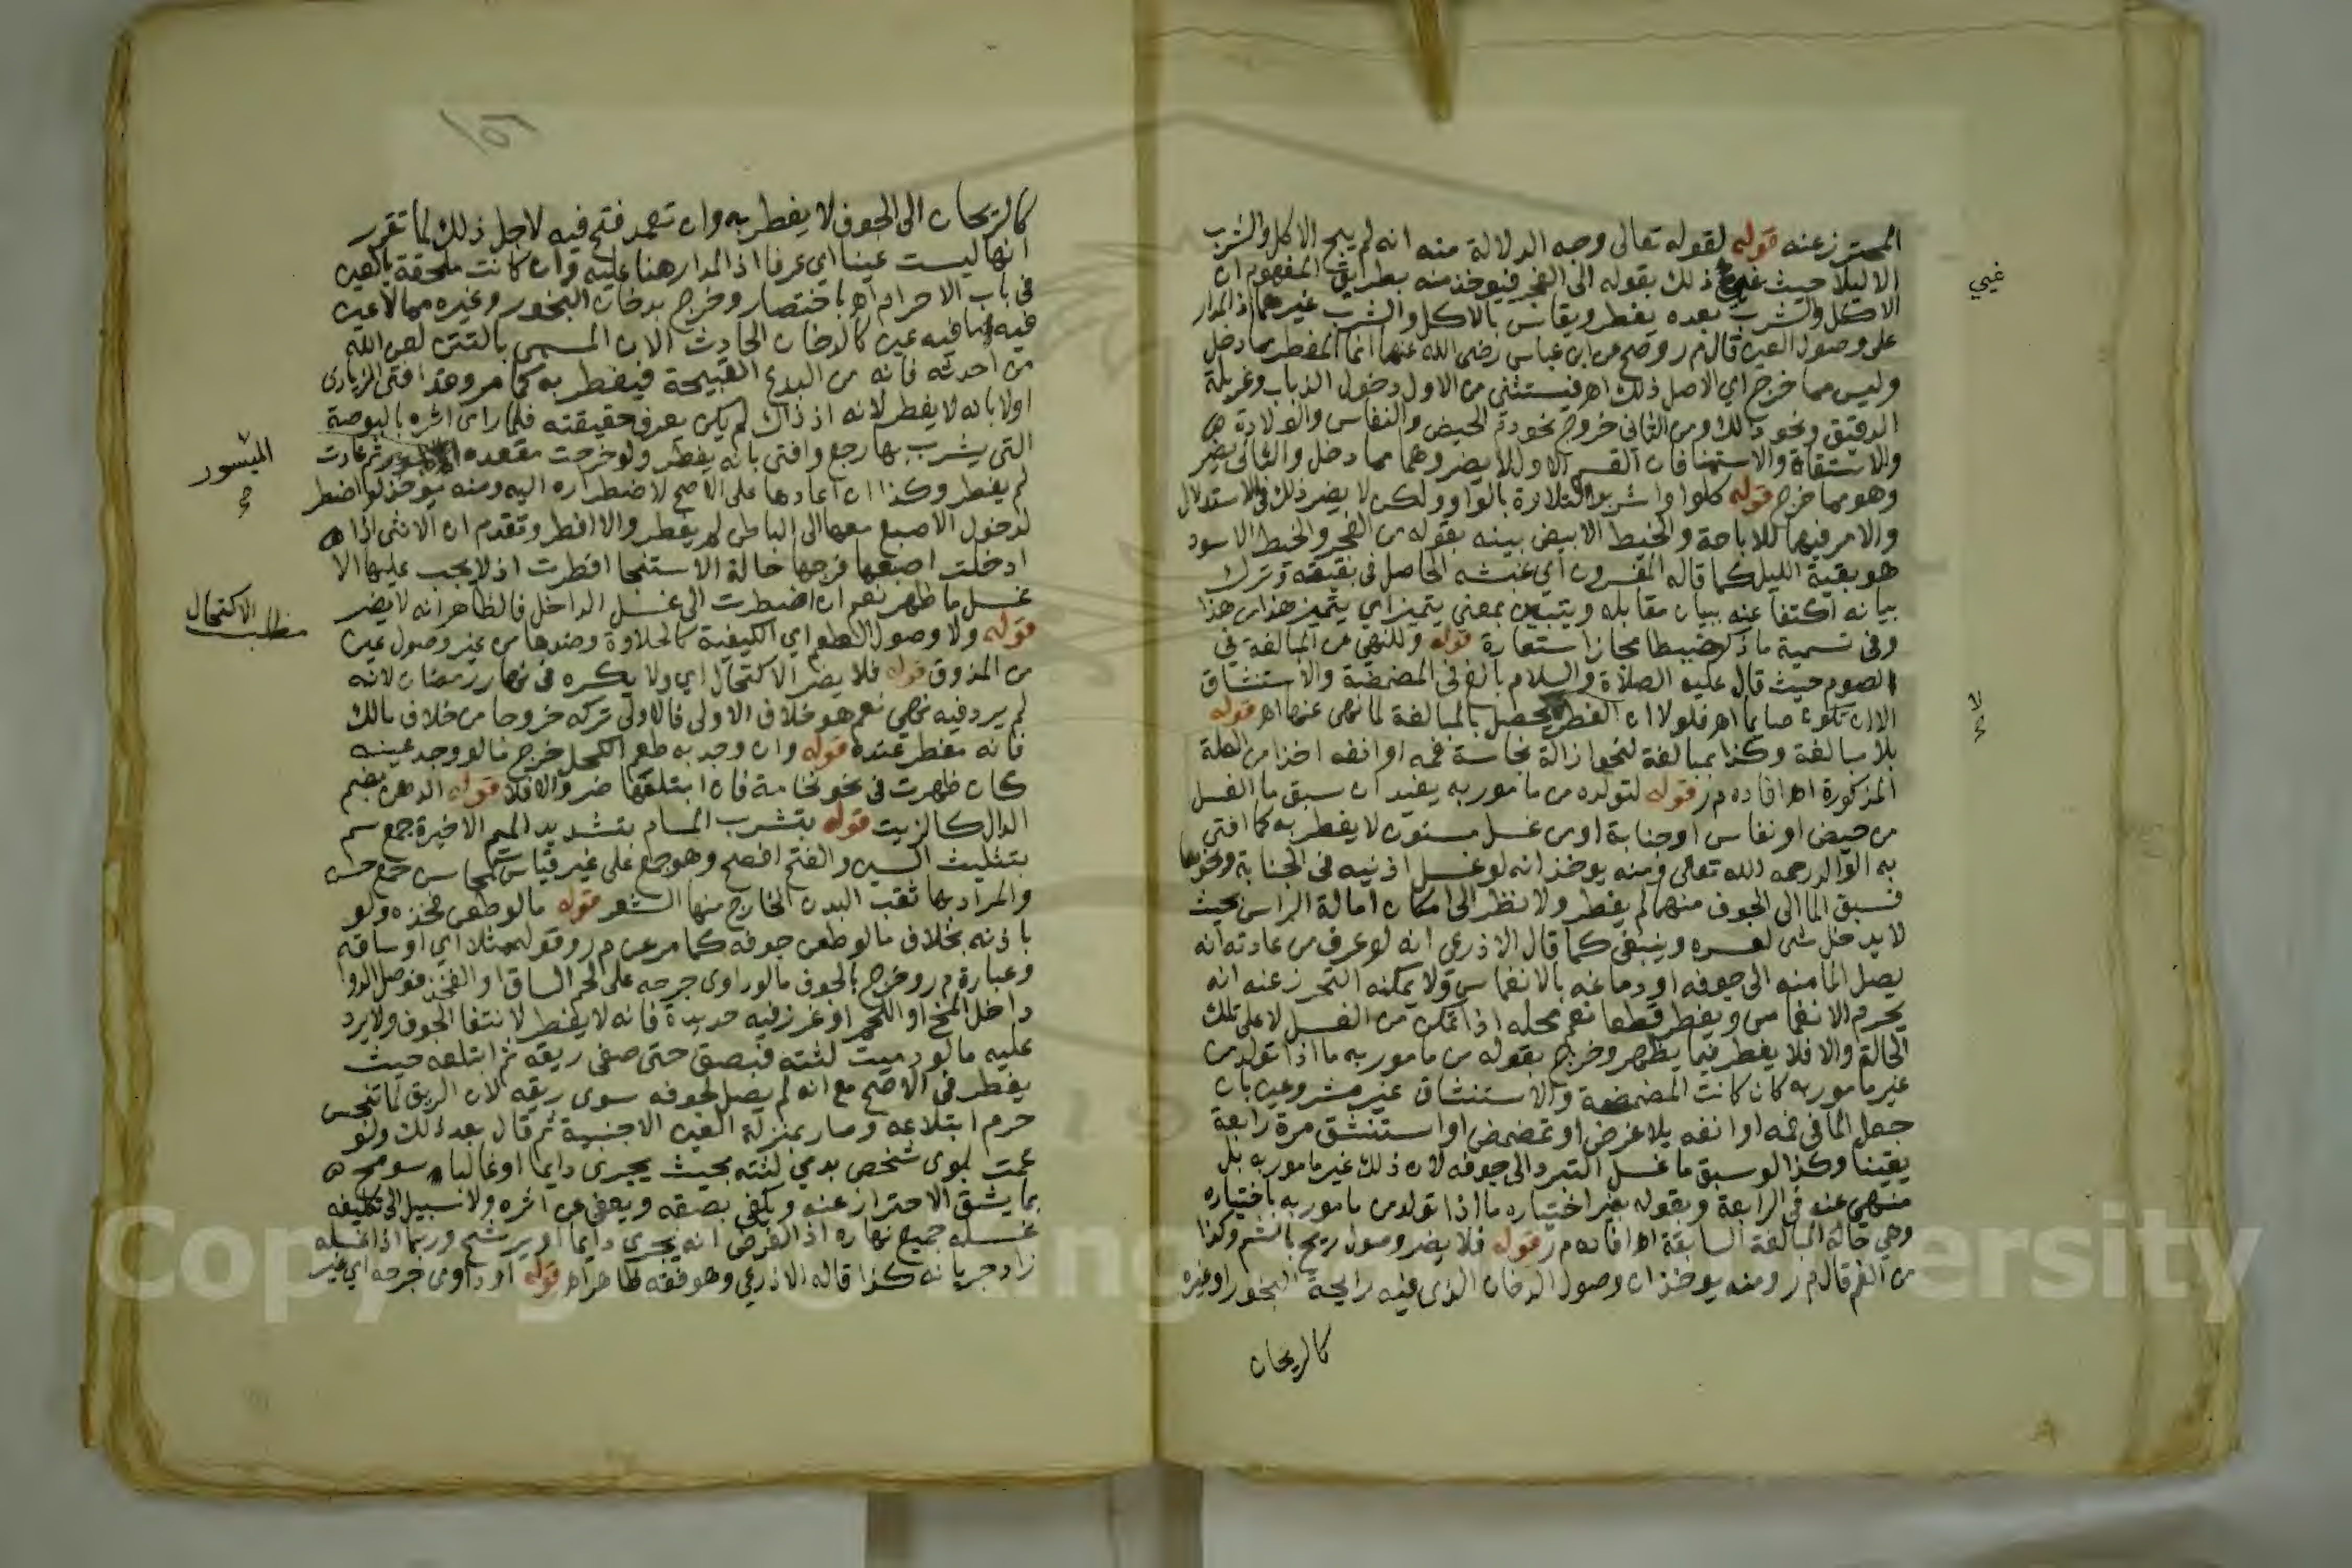 المحترز عنه قوله لقوله تعالى وجه الدلالة منه انه لم يبح الاكل والشرب
الا ليلا حيث ذلك بقوله الى الفجر فيوخذ منه بطريق المفهوم ان
غيي
الاكل والشرب بعده يفطر ويقاس بالاكل والشرب غيرهما اذ المدار
على وصول العين قال م ر وصح عن ابن عباس رضى الله عنهما انما الفطر مما دخل
وليس مما خرج اي الاصل ذلك اهـ فيستثنى من الاول دخول الذباب وغربلة
الدقيق ونحو ذلك ومن الثانى خروج نحو دم الحيض والنفاس والولادة
والاستقاة والاستمنا فان القسم الاول لا يضر وهما مما دخل والثانى يضر
وهو مما خرج قوله كلوا واشربوا التلاوة بالواو ولكن لا يضر ذلك فى الاستدلال
والامر فيهما للاباحة والخيط الابيض بينه بقوله من الفجر والخيط الاسود
هو بقية الليل كما قاله المفسرون اي غبشه الحاصل فى بقيته وترك
بيانه اكتفا عنه ببيان مقابله ويتبين بمعنى يتميز اي يتميز هذا من هذا
وفى تسمية ما ذكر خيطا مجاز استعارة قوله وللنهي عن المبالغة في
الصوم حيث قال عليه الصلاة والسلام بالغ فى المضمضة والاستنشاق
الا ان تكون صايما اهـ فلولا ان الفطر يحصل بالمبالغة لما نهى عنها اهـ قوله
لا
بلا مبالغة وكذا بمبالغة لنحو ازالة نجاسة فمه او انفه اخذا من العلة
المذكورة اهـ افاده م ر قوله لتولده من مامور به يفيد ان سبق ما الغسل
من حيض او نفاس او جنابة او من غسل مسنون لا يفطر به كما افتى
به الوالد رحمه الله تعالى ومنه يوخذ انه لو غسل اذنيه فى الجنابة ونحوها
فسبق الما الى الجوف منهما لم يفطر ولا نظر الى امكان امالة الراس بحيث
لا يدخل شى لعسره وينبغى كما قال الاذرعي انه لو عرف من عادته انه
يصل الما منه الى جوفه او دماغه بالانغماس ولا يمكنه التحرز عنه انه
يحرم الانغماس ويفطر قطعا نعم محله اذا تمكن من الغسل لا على تلك
الحالة والا فلا يفطر فيما يظهر وخرج بقوله من مامور به ما اذا تولد من
غير مامور به كان كانت المضمضة والاستنشاق غير مشروعين بان
جعل الما فى فمه او انفه بلا غرض او تمضمض او استنشق مرة رابعة
يقينا وكذا لو سبق ما غسل التبرد الى جوفه لان ذلك غير مامور به بل
منهي عنه فى الرابعة وبقوله بغير اختياره ما اذا تولد من مامور به باختياره
وهي حالة المبالغة السابقة اهـ افاده م ر قوله فلا يضر وصول ريح بالشم وكذا
من الفم قال م ر ومنه يوخذ ان وصول الدخان الذى فيه رايحة البخور او غيره
كالريحان
كالريحان الى الجوف لا يفطر به وان تعمد فتح فيه لاجل ذلك لما تقرر
انها ليست عينا اي عرفا اذ المدار هنا عليه وان كانت ملحقة بالعين
فى باب الاحرام اهـ باختصار وخرج بدخان البخور وغيره مما لا عين
فيه ما فيه عين كالدخان الحادث الان المسمى بالتتن لعن الله
من احدثه فانه من البدع القبيحة فيفطر به كما مر وقد افتى الزيادى
اولا بانه لا يفطر لانه اذ ذاك لم يكن يعرف حقيقته فلما راى اثره بالبوصة
التى يشرب بها رجع وافتى بانه يفطر ولو خرجت مقعدة ثم عادت
الميسور
لم يفطر وكذا ان اعادها على الاصح لاضطراره اليه ومنه يوخذ لو اضطر
لدخول الاصبع معها الى الباطن لم يفطر والا افطر وتقدم ان الانثى اذا
ادخلت اصبعها فرجها حالة الاستنجا افطرت اذ لا يجب عليها الا
غسل ما ظهر نعم ان اضطرت الى غسل الداخل فالظاهر انه لا يضر
مطلب الاكتحال
قوله ولا وصول الطعم اي الكيفية كالحلاوة وضدها من غير وصول عين
من المذوق قوله فلا يضر الاكتحال اي ولا يكره فى نهار رمضان لانه
لم يرد فيه نهي نعم هو خلاف الاولى فالاولى تركه خروجا من خلاف مالك
فانه مفطر عنده قوله وان وجد به طعم الكحل خرج ما لو وجد عينه
كان ظهرت فى نحو نخامة فان ابتلعها ضر والا فلا قوله الدهن بضم
الدال كالزيت قوله بتشرب المسام بتشديد الميم الاخيرة جمع سم
بتثليث السين والفتح افصح وهو جمع على غير قياس كمحاسن جمع حسن
والمراد بها ثقب البدن الخارج منها الشعر قوله ما لو طعن فخذه ولو
باذنه بخلاف ما لو طعن جوفه كما مر عن م ر وقوله مثلا اي او ساقه
وعبارة م ر وخرج بالجوف ما لو داوى جرحه على لحم الساق او الفخذ فوصل الدوا
داخل المخ او اللحم او غرز فيه حديدة فانه لا يفطر لانتفا الجوف ولا يرد
عليه ما لو دميت لثته فبصق حتى صفى ريقه ثم ابتلعه حيث
يفطر فى الاصح مع انه لم يصل لجوفه سوى ريقه لان الريق لما تنجس
حرم ابتلاعه وصار بمنزلة العين الاجنبية ثم قال بعد ذلك ولو
عمت بلوى شخص بدمي لثته بحيث يجرى دايما او غالبا سومح
بما يشق الاحتراز عنه ويكفى بصقه ويعفى عن اثره ولا سبيل الى تكليفه
غسله جميع نهاره اذ الفرض انه يجرى دايما او يرشح وربما اذا غسله
زاد جريانه كذا قاله الاذرعي وهو فقه ظاهر اهـ قوله او داوى جرحه اي غير
Copyright © King Saud University